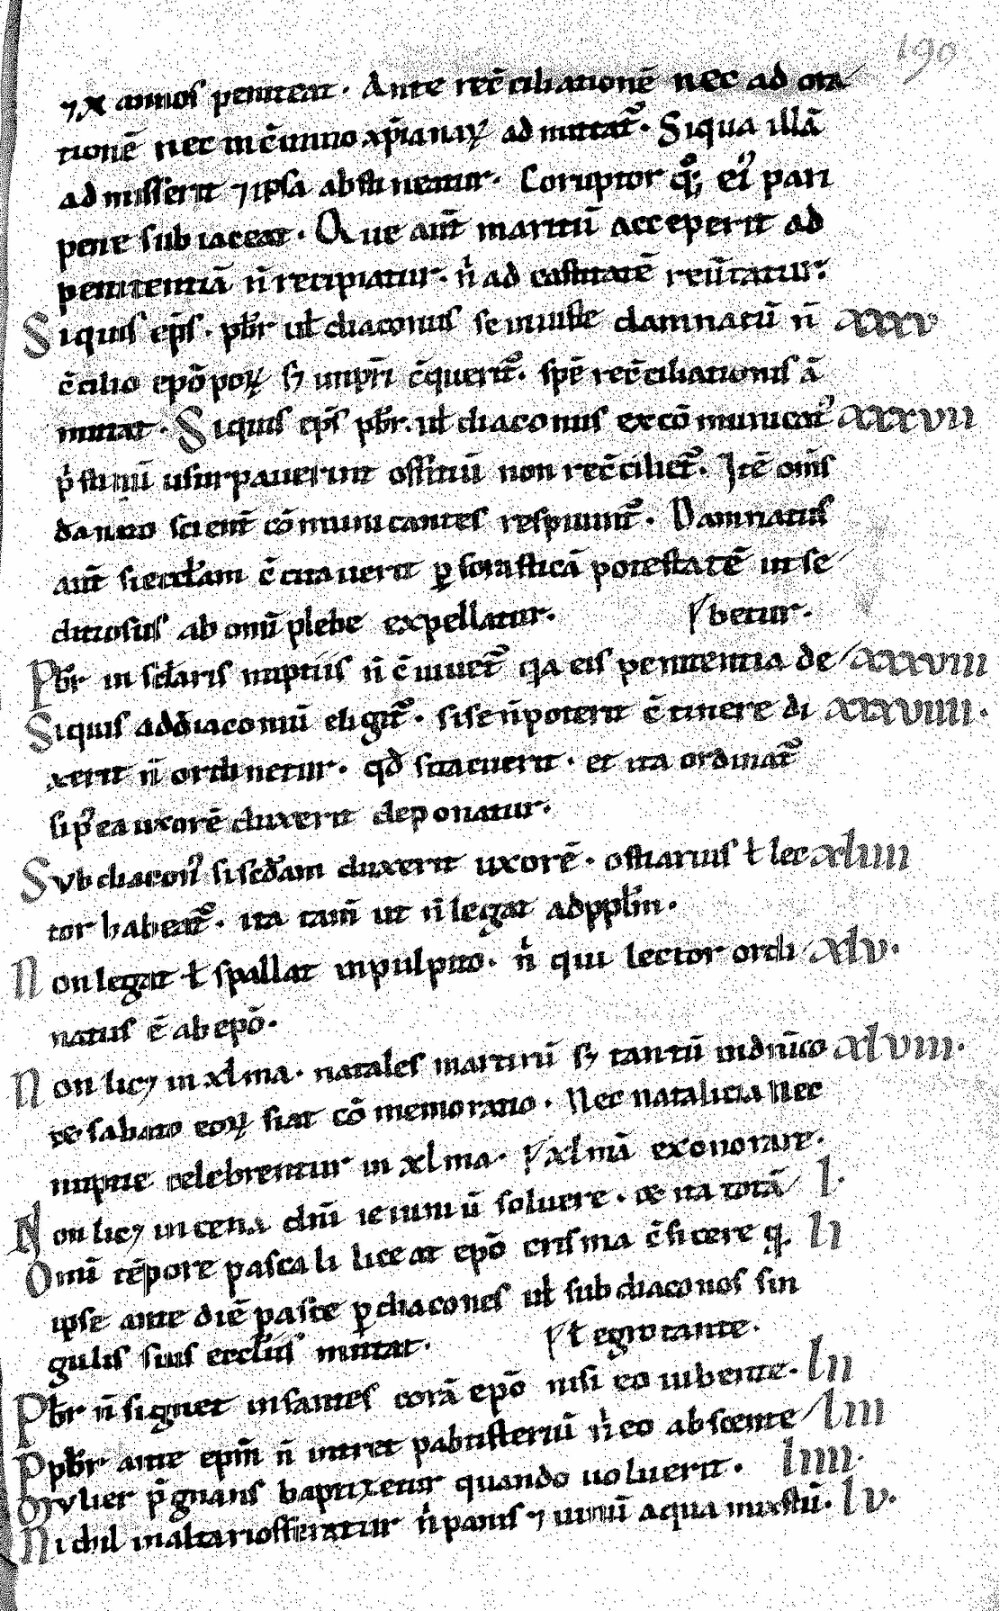 190
⁊ X annos peniteat. Ante rec̄ciliationē nec ad ora/
tionē nec in c̄iunio xp̄ianaꝝ admittat᷑. Siqua illā
admisserit ⁊ ipsa abstineatur. Coruptor qꝫ ei᷒ pari
pene subiaceat. Que aut̄ maritū acceperit ad
penitentiā n̄ recipiatur. n̓ ad castitatē reūtatur.
Siquis ep̄s. pb̄r ul̄ diaconus se iniuste damnatū n̄ xxxv
c̄cilio epōpoꝝ sꝫ inpr̄i c̄querit᷑. spē rec̄ciliationis ā
mittat. Siquis ep̄s pb̄r. ul̄ diaconus excōmunicat᷒ xxxvii
p̓stinū usurpauerint offitiū non rec̄ciliet᷑. Itē om̄s
danato scient̄ cōmunicantes respuunt᷑. Damnatus
aut̄ si eccl̄am c̄citauerit ꝑ forasticā potestatē ut se/
ditiosus ab omī plebe expellatur. /betur.
Pb̄r in scl̄aris nuptiis n̄ c̄uiuet᷑ qa eis penitentia de/ xxxviii
Siquis addiaconiū eligit᷑. si se n̄ poterit c̄tinere di xxxviiii.
xerit n̄ ordinetur. qd̄ si tacuerit. et ita ordinat᷑
si p᷒ ea uxorē duxerit deponatur.
Subdiacon᷒ si scd̄am duxerit uxorē. ostiarius ł lec xliiii
tor habeat᷑. ita tam̄ ut n̄ legat ad pp̄lm.
Non legat ł spallat in pulpito. n̓ qui lector ordi xlv.
natus ē ab epō.
Non licꝫ in xl̄ma. natales martirū sꝫ tantū in dn̄ico xlviii.
et sabato eoꝝ fiat cōmemoratio. Nec natalitia nec
nuptie celebrentur in xl̄ma. /xl̄mā exonorare.
Non licꝫ in cena dn̄i ieiuniū soluere. et ita totā/ l.
Omī tēpore pascali liceat epō crisma c̄ficere q. li
ipse ante diē pasce ꝑ diacones ul̄ subdiaconos sin
gulis suis eccl̄iis mittat. /ł egrotante.
Pb̄r n̄ signet infantes corā epō nisi eo iubente. lii
Ppb̄r ante epm̄ n̄ intret pabtisteriū n̓ eo abscente/ liii
Mulier p̄gnans baptizetur quando uoluerit. liiii.
Nichil in altari offeratur n̓ panis ⁊ uinū aqua mixstū. lv.